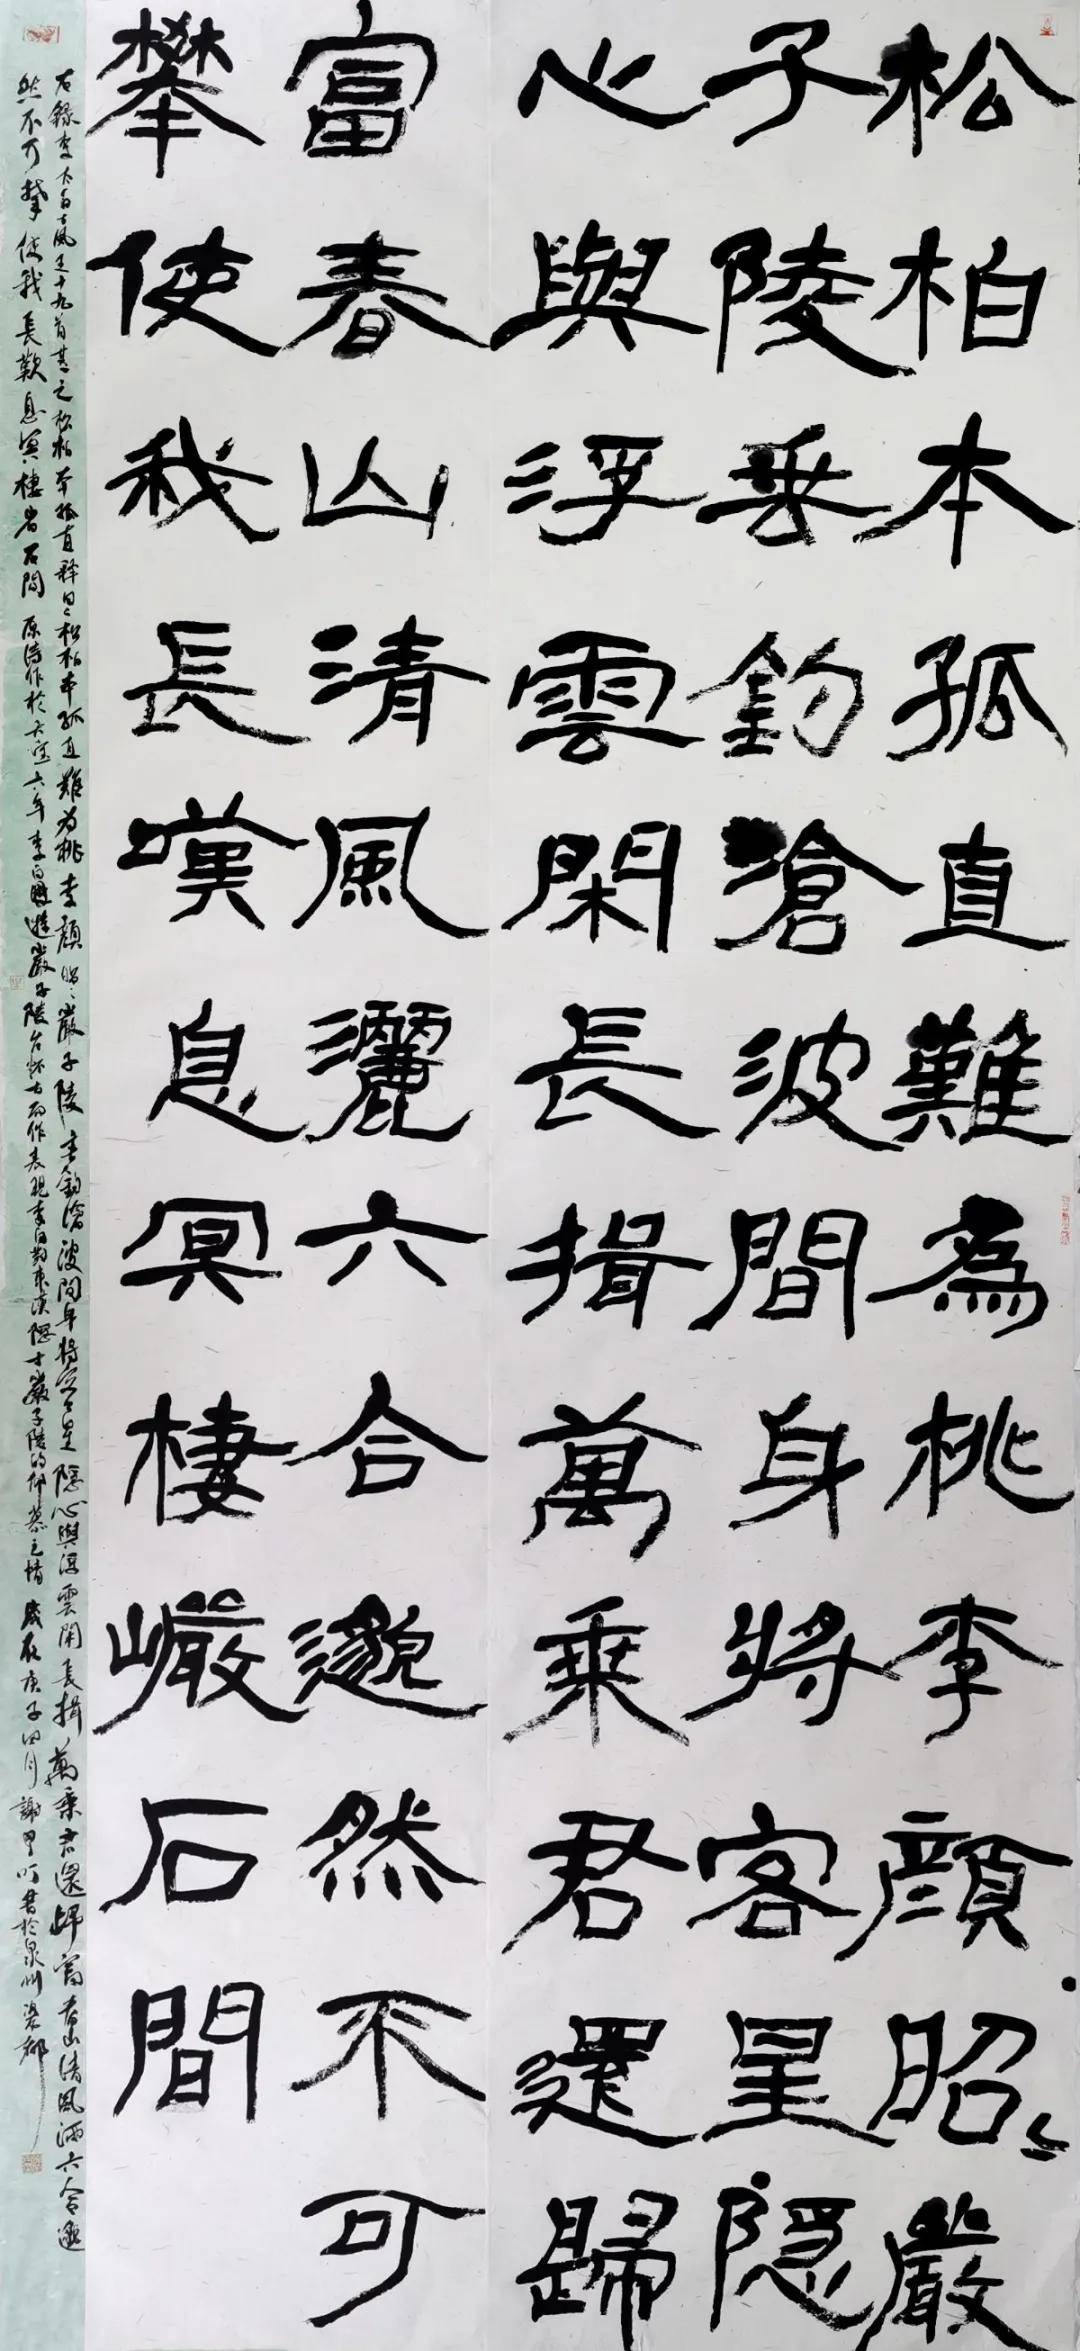 松柏本孤直難為桃李顏昭〻嚴
子陵垂釣滄波間身將客星隱
心與浮雲閑長揖萬乘君還歸
富春山清風灑六合邈然不可
攀使我長嘆息冥棲巖石間
右錄李太白古風五十九首其之松柏本孤直釋曰松柏本孤直難為桃李顏昭〻嚴子陵垂釣滄波間身將客星隱心與浮雲閑長揖萬乘君還歸富春山清風灑六合邈
然不可攀使我長歎息冥棲岩石間 原詩作於天寶六年李白遊嚴子陵台懷古而作表現李白對東漢隱士嚴子陵的仰慕之情 歲在庚子四月謝甲丁書於泉州